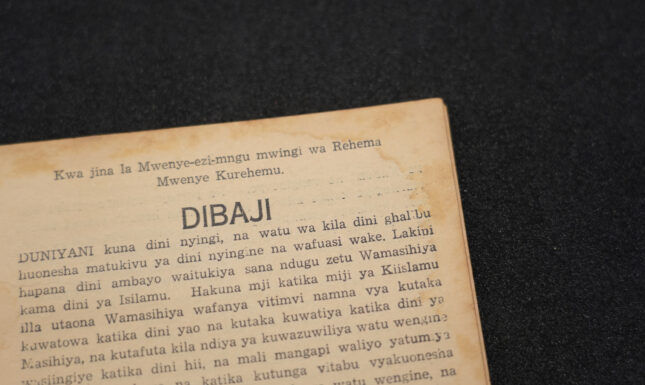 Kwa jina la Mwenye-ezi-mngu mwingi wa Rehema
Mwenye Kurehemu.
DIBAJI
DUNIYANI kuna dini nyingi, na watu wa kila dini ghalibu
huonesha matukivu ya dini nyingine na wafuasi wake. Lakini
hapana dini ambayo waitukiya sana ndugu zetu Wamasihiya
kama dini ya Isilamu. Hakuna mji katika miji ya Kiislamu
illa utaona Wamasihiya wafanya vitimvi namna vya kutaka
kuwatowa katika dini yao na kutaka kuwatiya katika dini ya
Masihiya, na kutafuta kila ndiya ya kuwazuwiliya watu wengine
wasiingiye katika dini hii, na mali mangapi waliyo yatumiya
na katika kutunga vitabu vyakuonesha
watu wengine, na